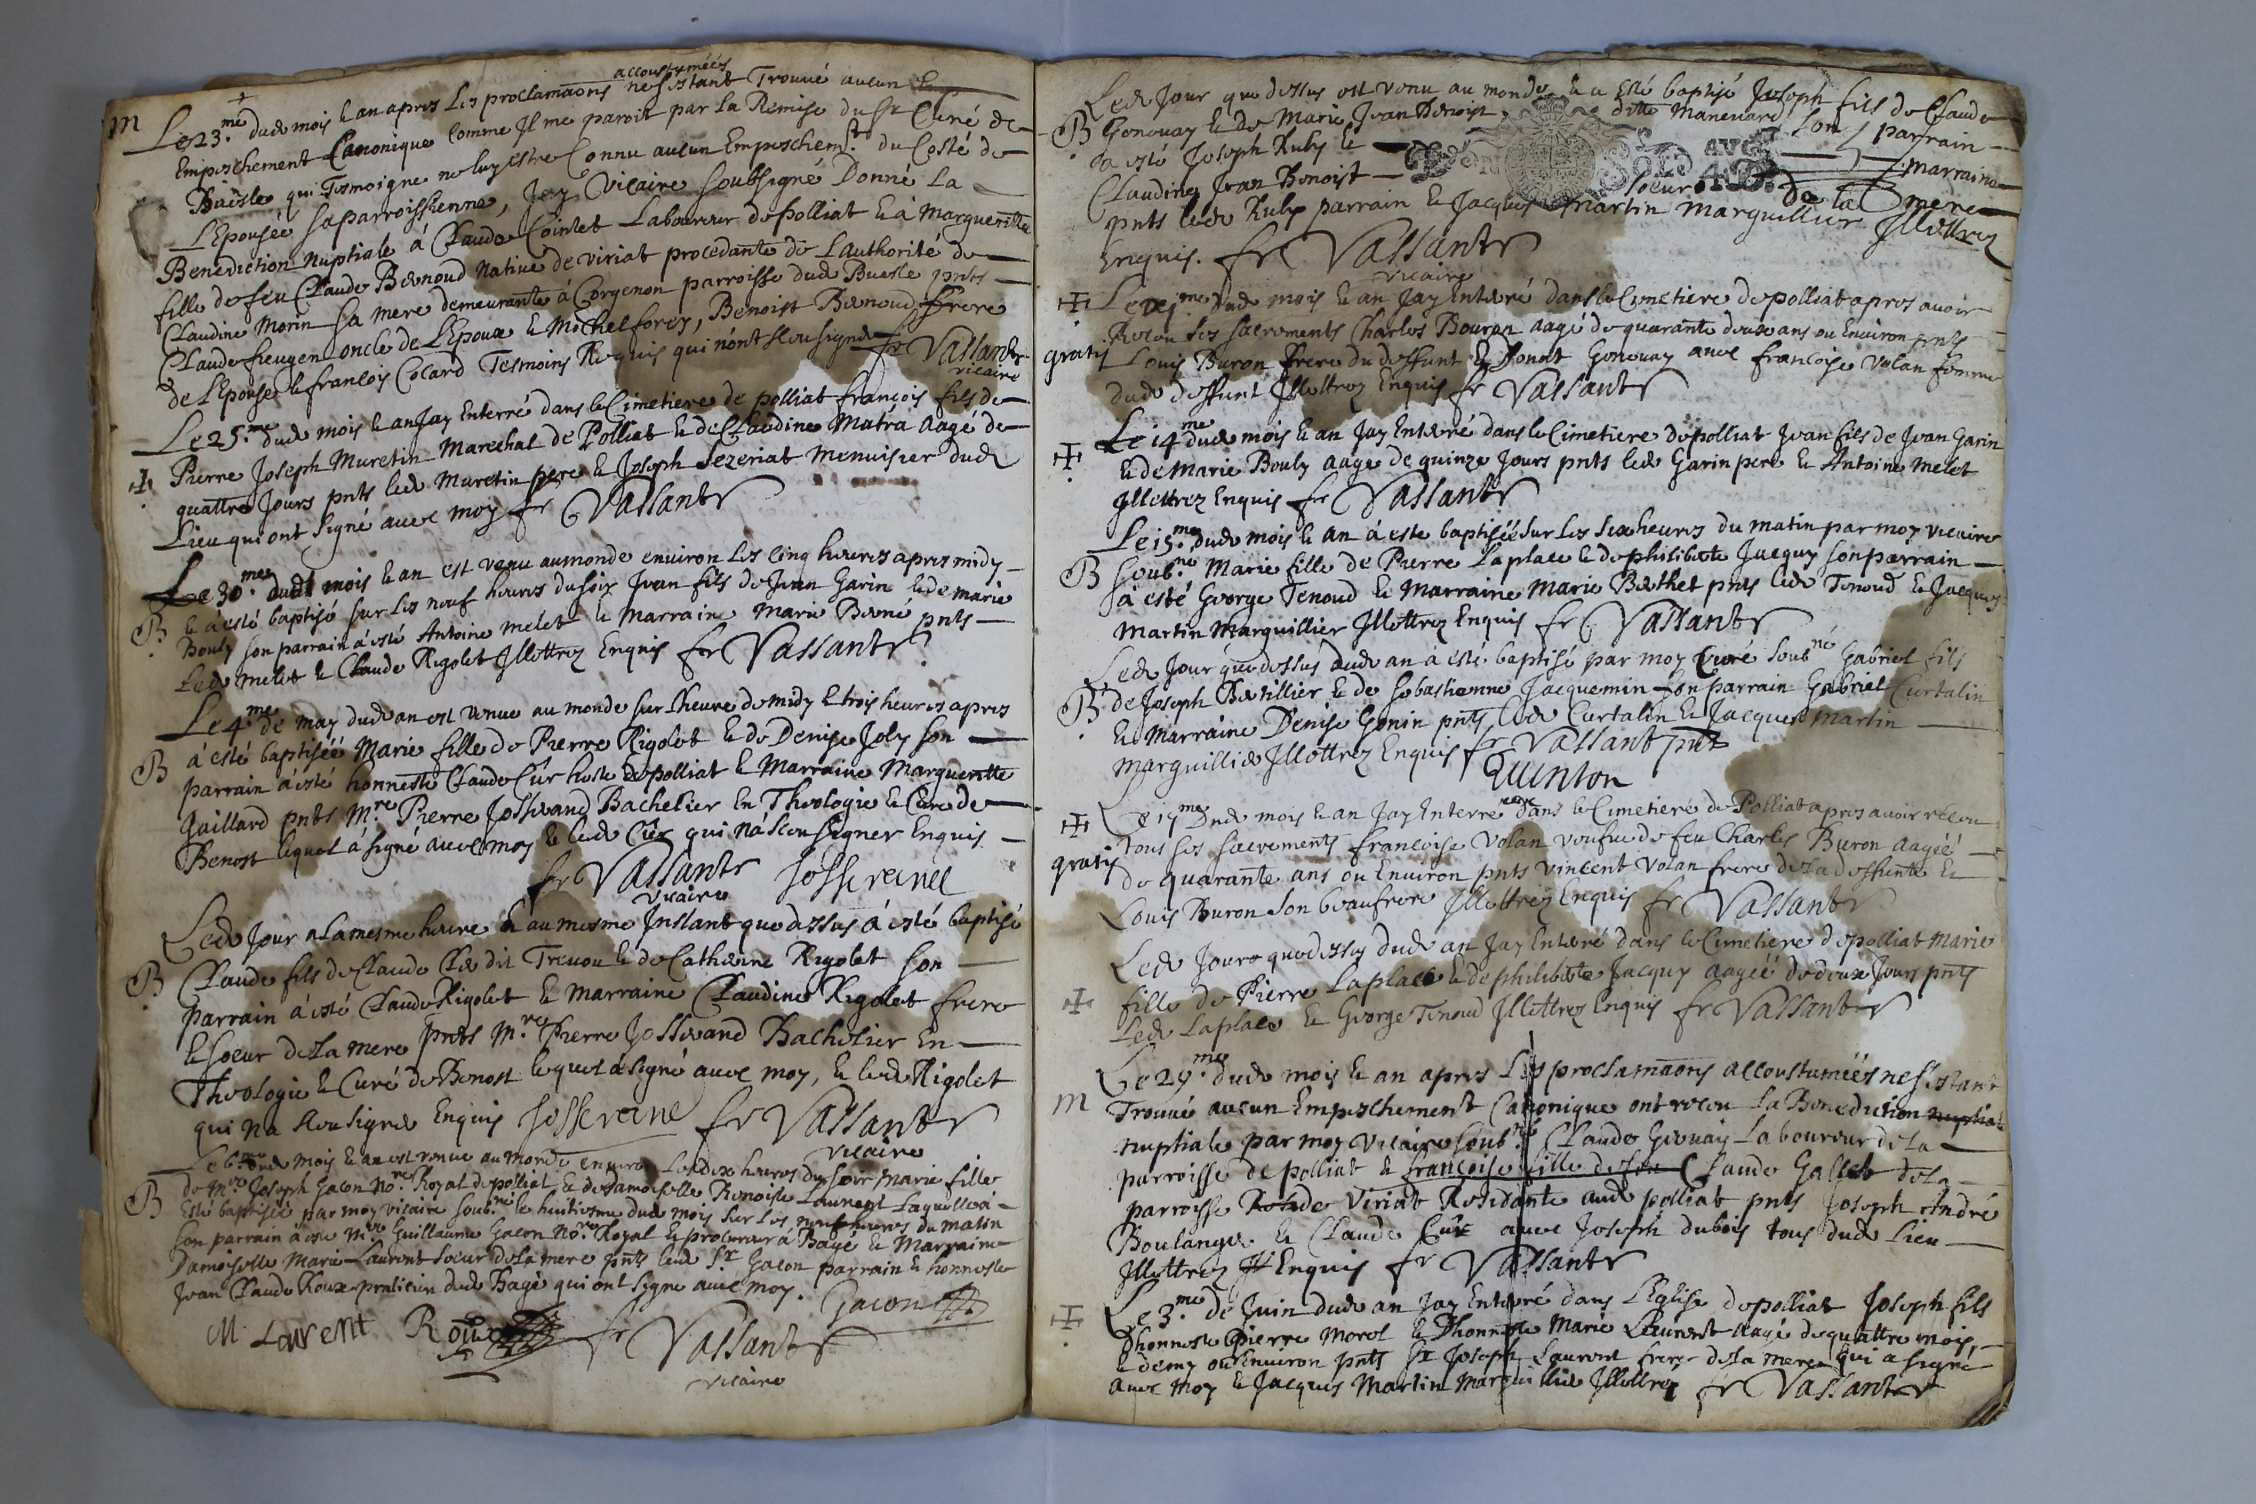 m Le 23.me dud. mois & an apres Les proclamaons accoustumées ne s'estant Trouvé aucun
Empeschement Canonique Comme Il me paroit par La Remise du Sr Curé de
Buesle qui Tesmoigne ne luy estre Connu aucun Empeschemt. du Costé de
L'Epousée sa parroissienne, Jay Vicaire soubsigné Donné La
Benediction Nuptiale á Claude Cointet Laboureur de polliat & á Margueritte
fille de feu Claude Bernoud Native de viriat procedante de L'authorité de
Claudine Morin sa mere demeurante á Corgenon parroisse dud. Buesle pnts
Claude fieugen oncle de L'Epoux & Michel forey, Benoist Bernoud frere
de L'Epouse & francois Cocard Tesmoins Requis qui n'ont sceu signer fr Vassant
vicaire
Le 25.me dud. mois & an Jay Enterré dans le Cimetiere de polliat françois fils de
Pierre Joseph Muretin Marechal de Polliat & de Claudine Matra aagé de
quattre Jours pnts led. Muretin pere & Joseph Sezeriat Menuisier dud.
Lieu qui ont signé avec moy fr Vassant
Le 30.me dud. mois & an est venu au monde environ Les cinq heures apres midy
B & a esté baptisé sur Les neuf heures du soir Jean fils de Jean Garin & de marie
Bouly son parrain a esté Antoine melet & marraine Marie Berne pnts
Led. melet & Claude Rigolet Illettrez Enquis fr Vassant
Le 4.me de may dud. an est venue au monde sur L'heure de midy & trois heures apres
B á esté baptiséé Marie fille de Pierre Rigolet & de Denise Joly son
parrain a esté honneste Claude Cûr hoste de polliat & Marraine Margueritte
Gaillard pnts M.re Pierre Josserand Bachelier En Theologie & Curé de
Benost lequel á signé avec moy & led. Cûr qui n'á sceu signer Enquis
fr Vassant Josserand
vicaire
Led. Jour a La mesme heure & au mesme Instant que dessus á esté baptisé
B Claude fils de Claude dit Trevou & de Catherine Rigolet son
parrain á esté Claude Rigolet & marraine Claudine Rigolet frere
& soeur de La mere pnts M.re Pierre Josserand Bachelier En
Theologie & Curé de Benost lequel a signé avec moy, & led. Rigolet
qui n'a sceu signer Enquis Josserand fr Vassant
vicaire
Le 6.me dud. mois & an est venue au monde environ Les dix heures du soir Marie fille
de M.re Joseph Gacon No.re Royal de polliat & de damoiselle Benoiste Laurent Laquelle á
B Esté baptiséé par moy vicaire soub.né le huitiesme dud. mois sur Les neuf heures du matin
son parrain á esté M.re Guillaume Gacon No.re Royal & procureur á Bagé & Marraine
Damoiselle Marie Laurent soeur de La mere pnts led. Sr Gacon parrain & honneste
Jean Claude Roux praticien dud. Bagé qui ont signé avec moy. Gacon
M Lavrent Roux fr Vassant
vicaire
Led. Jour que dessus est venu au monde & a Esté baptisé Joseph fils de Claude
B Gonevay & de Marie Jean Benoist ditte Manevard son parrain
a esté Joseph Ruby & marraine
Claudine Jean Benoist soeur de la mere
pnts led. Ruby parrain & Jacques Martin Marguillier Illettrez
Enquis. fr Vassant
vicaire
Le dud. mois & an Jay Enterré dans le Cimetiere de polliat apres avoir
Receu ses sacrements Charles Buron aagé de quarante deux ans ou Environ pnts
gratis Louis Buron frere du deffunt & Donat Gonevay avec francoise Volan femme
dud. deffunt Illettrez Enquis fr Vassant
Le 14.me dud. mois & an Jay Enterré dans le Cimetiere de polliat Jean fils de Jean Garin
& de Marie Bouly aagé de quinze Jours pnts led. Garin pere & Antoine Melet
Illettrez Enquis fr Vassant
Le 15.me dud. mois & an á esté baptiséé sur Les six heures du matin par moy vicaire
B soub.né Marie fille de Pierre Laplace & de philiberte Jacquy son parrain
á esté George Tenoud & Marraine Marie Berthet pnts led. Tenoud & Jacques
Martin Marguillier Illettrez Enquis fr Vassant
Led. Jour que dessus dud. an á esté baptisé par moy Curé soub.né Gabriel fils
B de Joseph Bertillier & de sebastienne Jacquemin son parrain Gabriel Curtalin
& Marraine Denise Gonin pnts led. Curtalin & Jacques Martin
Marguillier Illettrez Enquis fr Vassant pnt
Quinton
Le 19.me dud. mois & an Jay Interré dans le Cimetiere de Polliat apres avoir receu
tous ses sacrements francoise Volan veufve de feu Charles Buron aagéé
gratis de quarante ans ou Environ pnts vincent Volan frere de La deffunte &
Louis Buron son beaufrere Illettrez Enquis fr Vassant
Led. Jour que dessus dud. an Jay Enterré dans le Cimetiere de polliat Marie
fille de Pierre Laplace & de philiberte Jacquy aagéé de deux Jours pnts
Led. Laplace & George Tenoud Illettrez Enquis fr Vassant
Le 29.me dud. mois & an apres Les proclamaons accoustuméés ne s'estant
m Trouvé aucun Empeschement Canonique ont receu La Benediction nuptiale
nuptiale par moy vicaire soub.né Claude Gevouay Laboureur de La
parroisse de polliat & francoise fille de feu Claude Gallet de La
parroisse de Viriat Residante aud. polliat pnts Joseph André
Boulanger & Claude Cûr avec Joseph dubois tous dud. Lieu
Illettrez Enquis fr Vassant
Le 3.me de Juin dud. an Jay Enterré dans L'Eglise de polliat Joseph fils
d'honneste Pierre Morel & d'honneste Marie Laurent aagé de quattre mois
& demy ou Environ pnts Sr Joseph Laurent frere de La mere qui a signé
avec moy & Jacques Martin Marguillier Illettrez fr Vassant